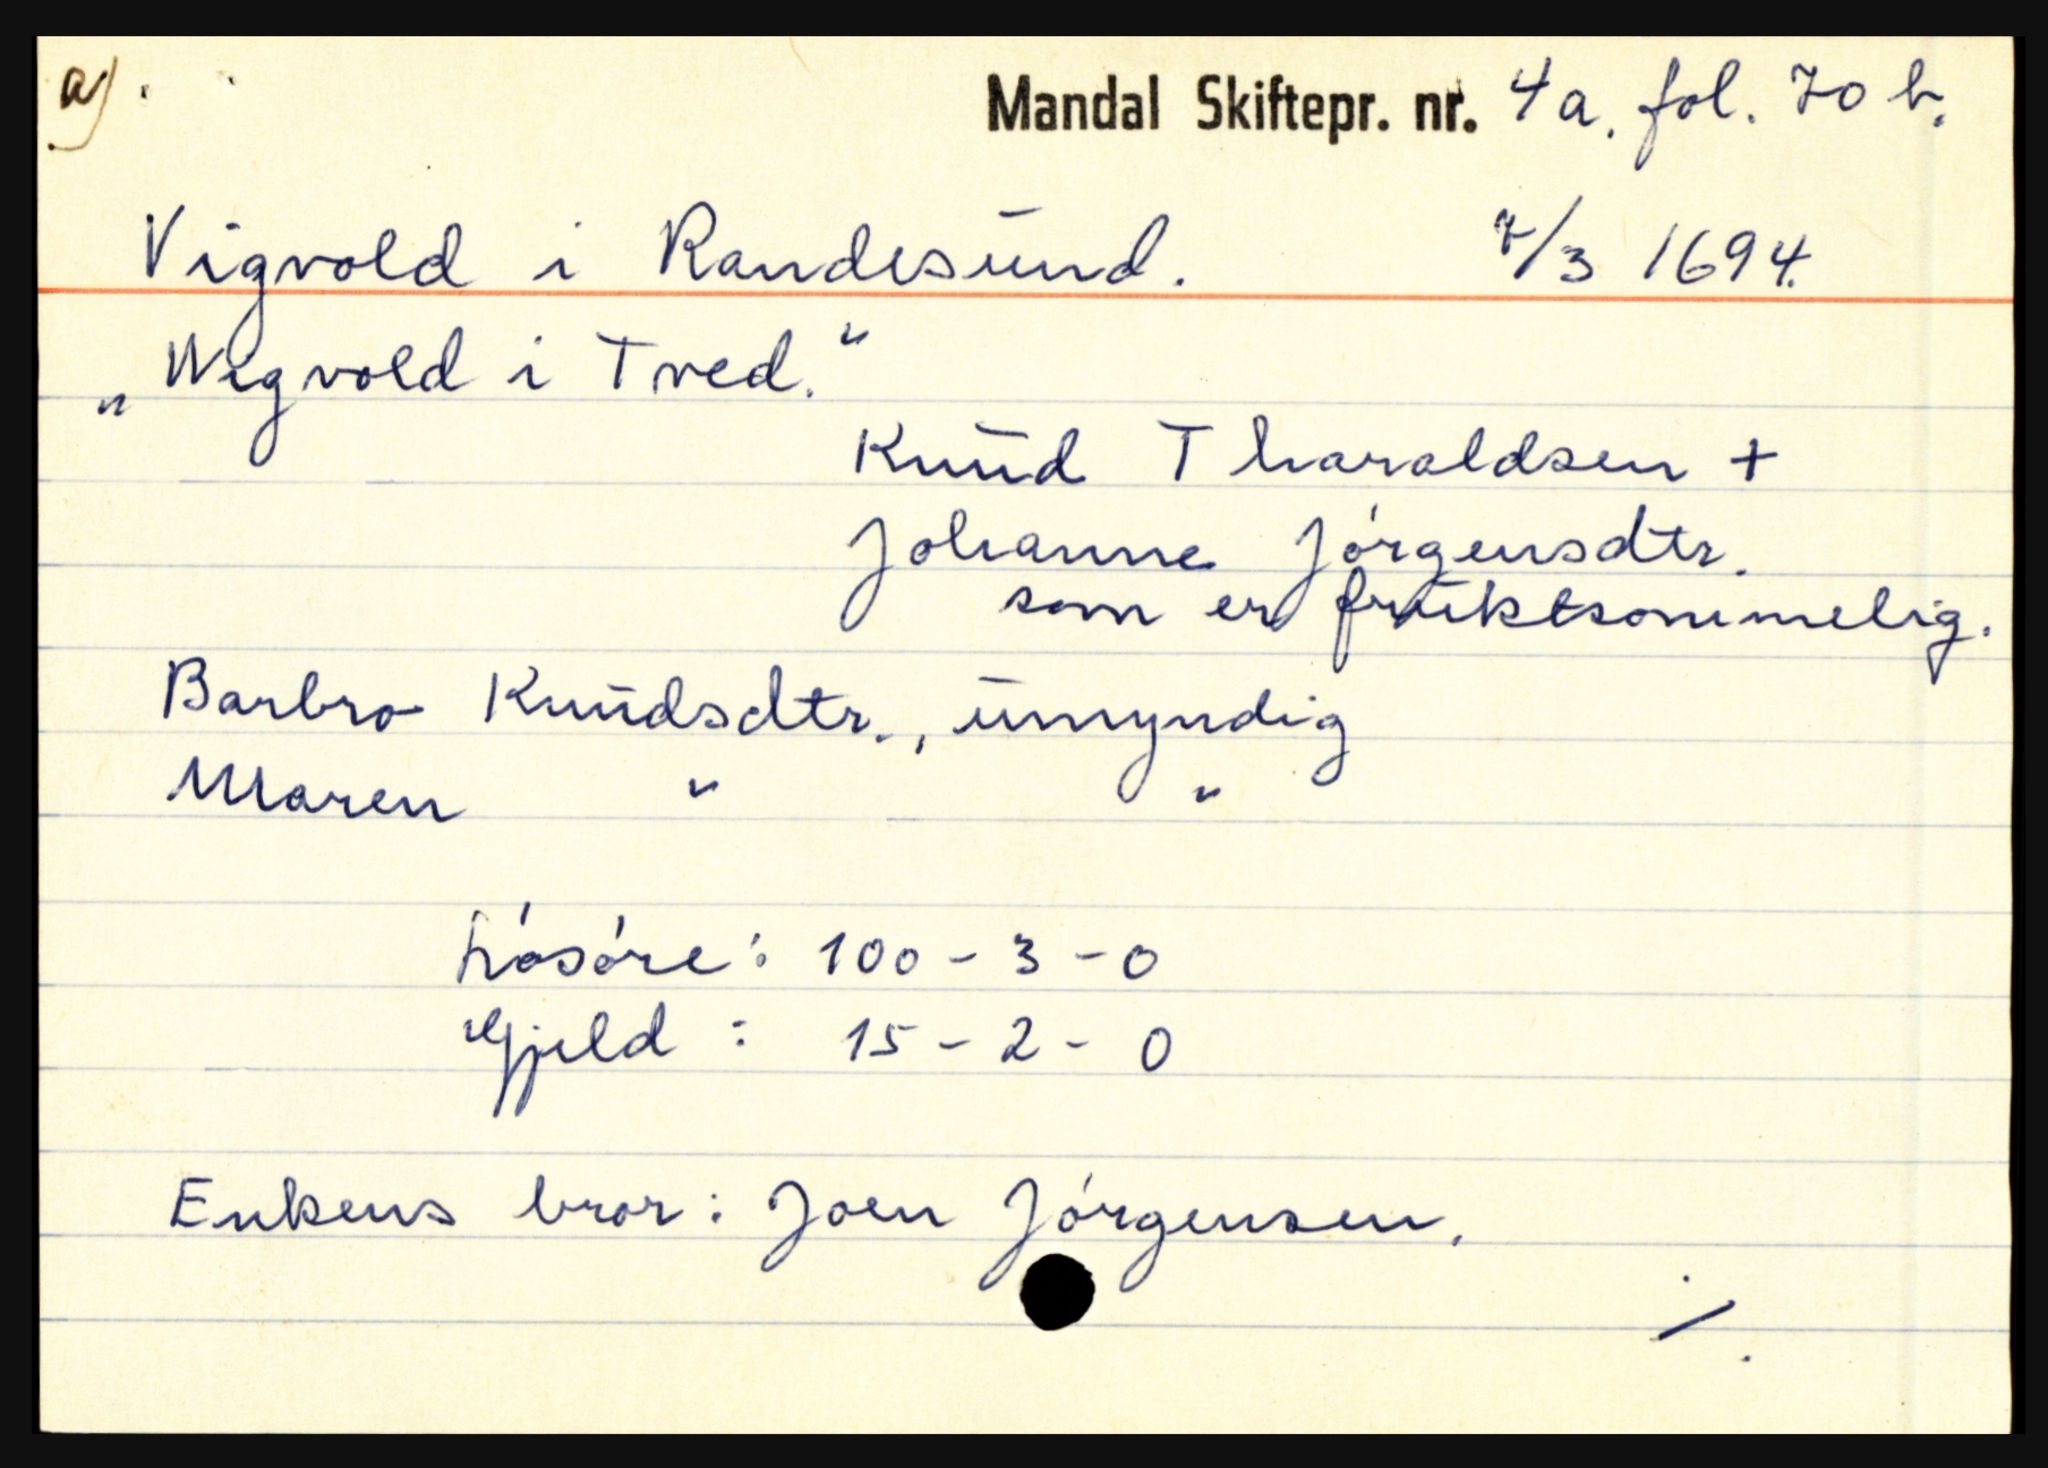 a)
Mandal Skiftepr. nr. 4a. fol. 70 b.
Vigvold i Randesund. 7/3 1694.
„Wigvold i Tved.“
Knud Tharaldsen +
Johanne Jórgensdtr.
som er fruktsommelig.
Barbro Knudsdtr., umyndig
Maren " "
Lósóre: 100 - 3 - 0
Gjeld : 15 - 2 - 0
Enkens bror: Joen Jórgensen.